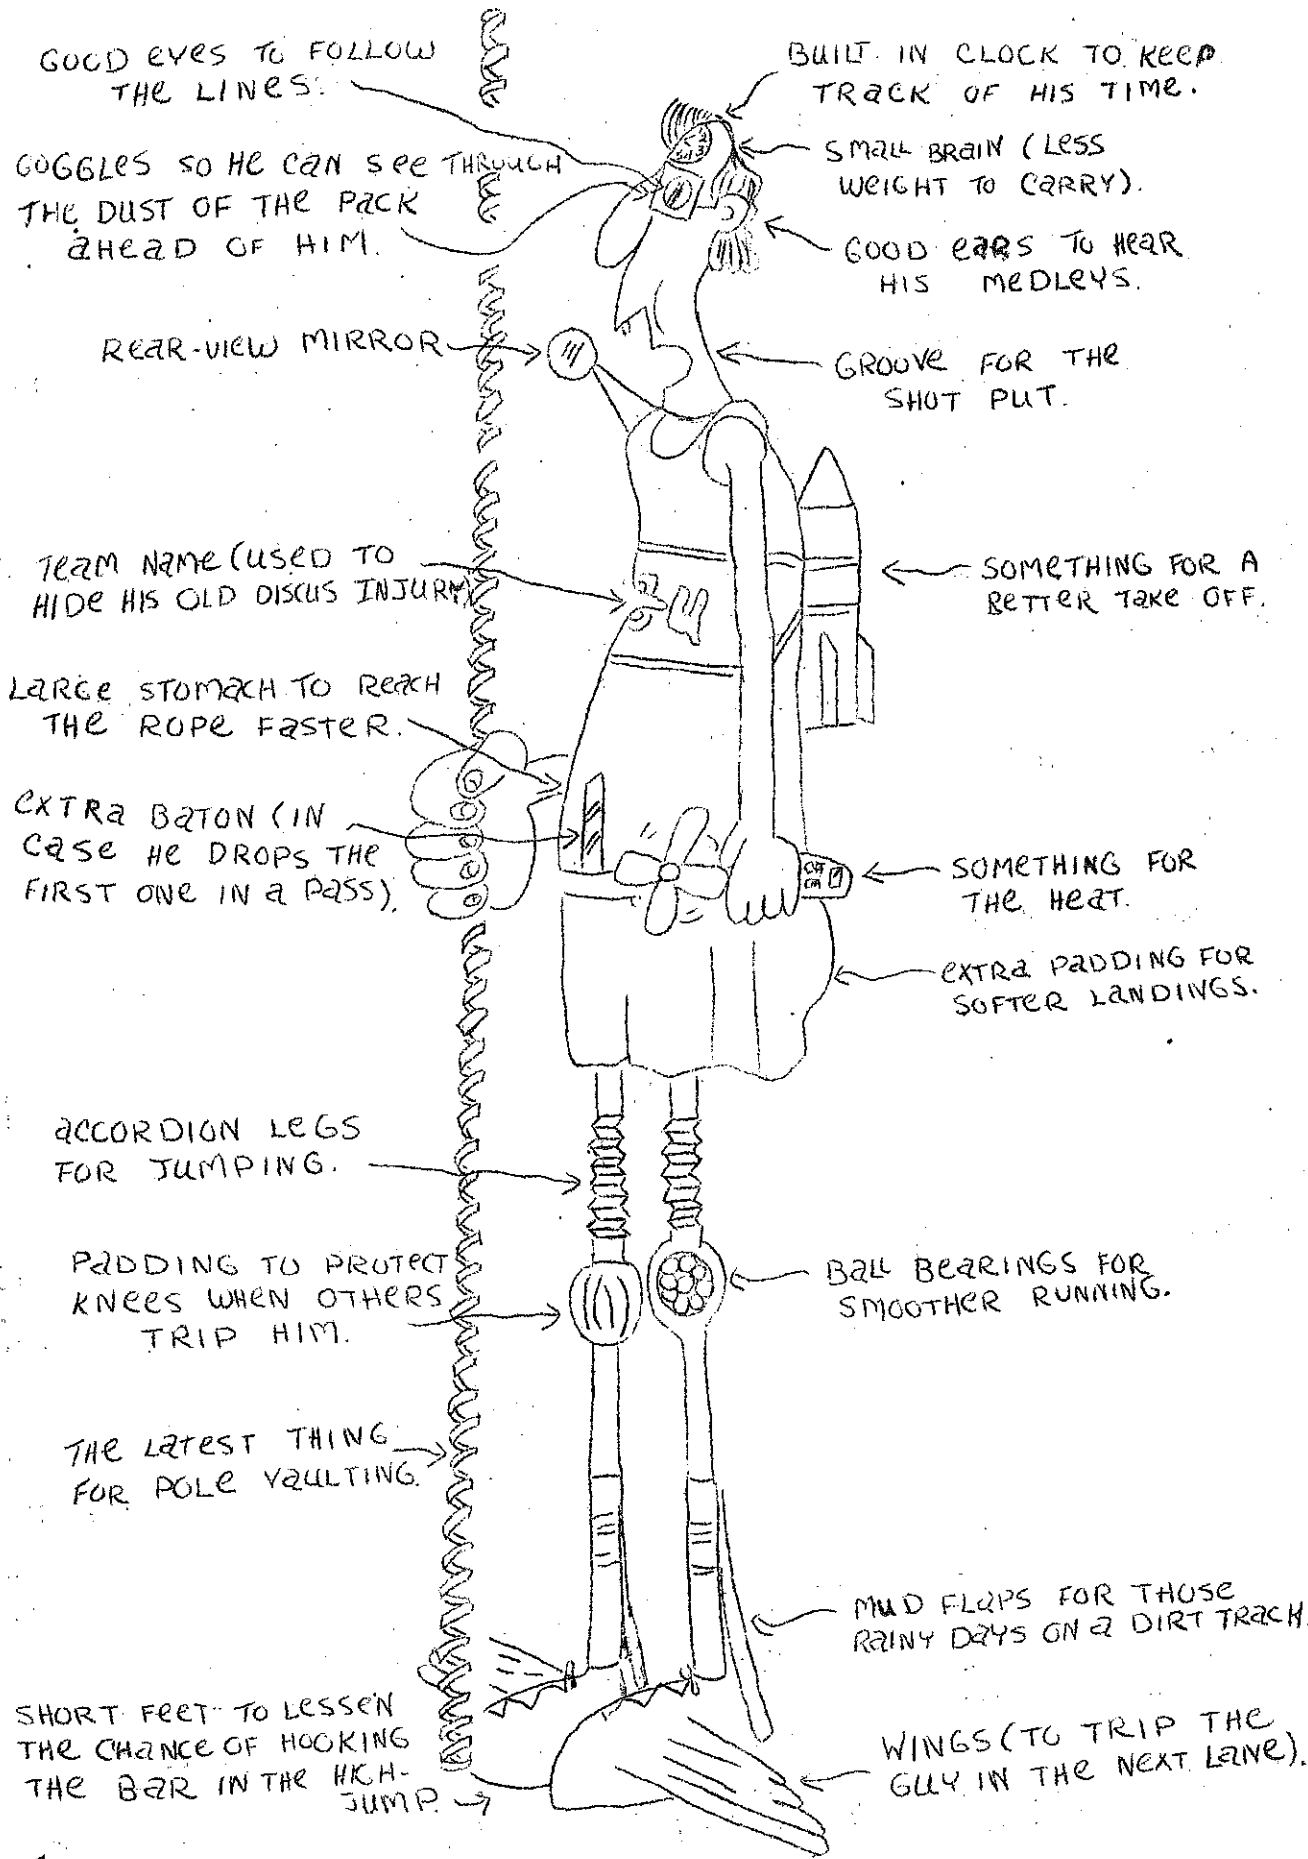 GOOD EYES TO FOLLOW
THE LINES.
GOGGLES SO HE CAN SEE THROUGH
THE DUST OF THE PACK
AHEAD OF HIM.
REAR-VIEW MIRROR
TEAM NAME (USED TO
HIDE HIS OLD DISCUS INJURY)
LARGE STOMACH TO REACH
THE ROPE FASTER.
EXTRA BATON (IN
CASE HE DROPS THE
FIRST ONE IN A PASS).
ACCORDION LEGS
FOR JUMPING.
PADDING TO PROTECT
KNEES WHEN OTHERS
TRIP HIM.
THE LATEST THING
FOR POLE VAULTING.
SHORT FEET TO LESSEN
THE CHANCE OF HOOKING
THE BAR IN THE HIGH-
JUMP.
BUILT IN CLOCK TO KEEP
TRACK OF HIS TIME.
SMALL BRAIN (LESS
WEIGHT TO CARRY).
GOOD EARS TO HEAR
HIS MEDLEYS.
GROOVE FOR THE
SHOT PUT.
SOMETHING FOR A
BETTER TAKE OFF.
SOMETHING FOR
THE HEAT.
EXTRA PADDING FOR
SOFTER LANDINGS.
BALL BEARINGS FOR
SMOOTHER RUNNING.
MUD FLAPS FOR THOSE
RAINY DAYS ON A DIRT TRACK.
WINGS (TO TRIP THE
GUY IN THE NEXT LANE).